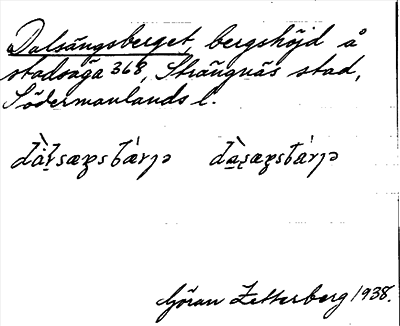 Dalsängsberget, bergshöjd å
stadsäga 368, Strängnäs stad,
Södermanlands l.
Göran Zetterberg 1938.